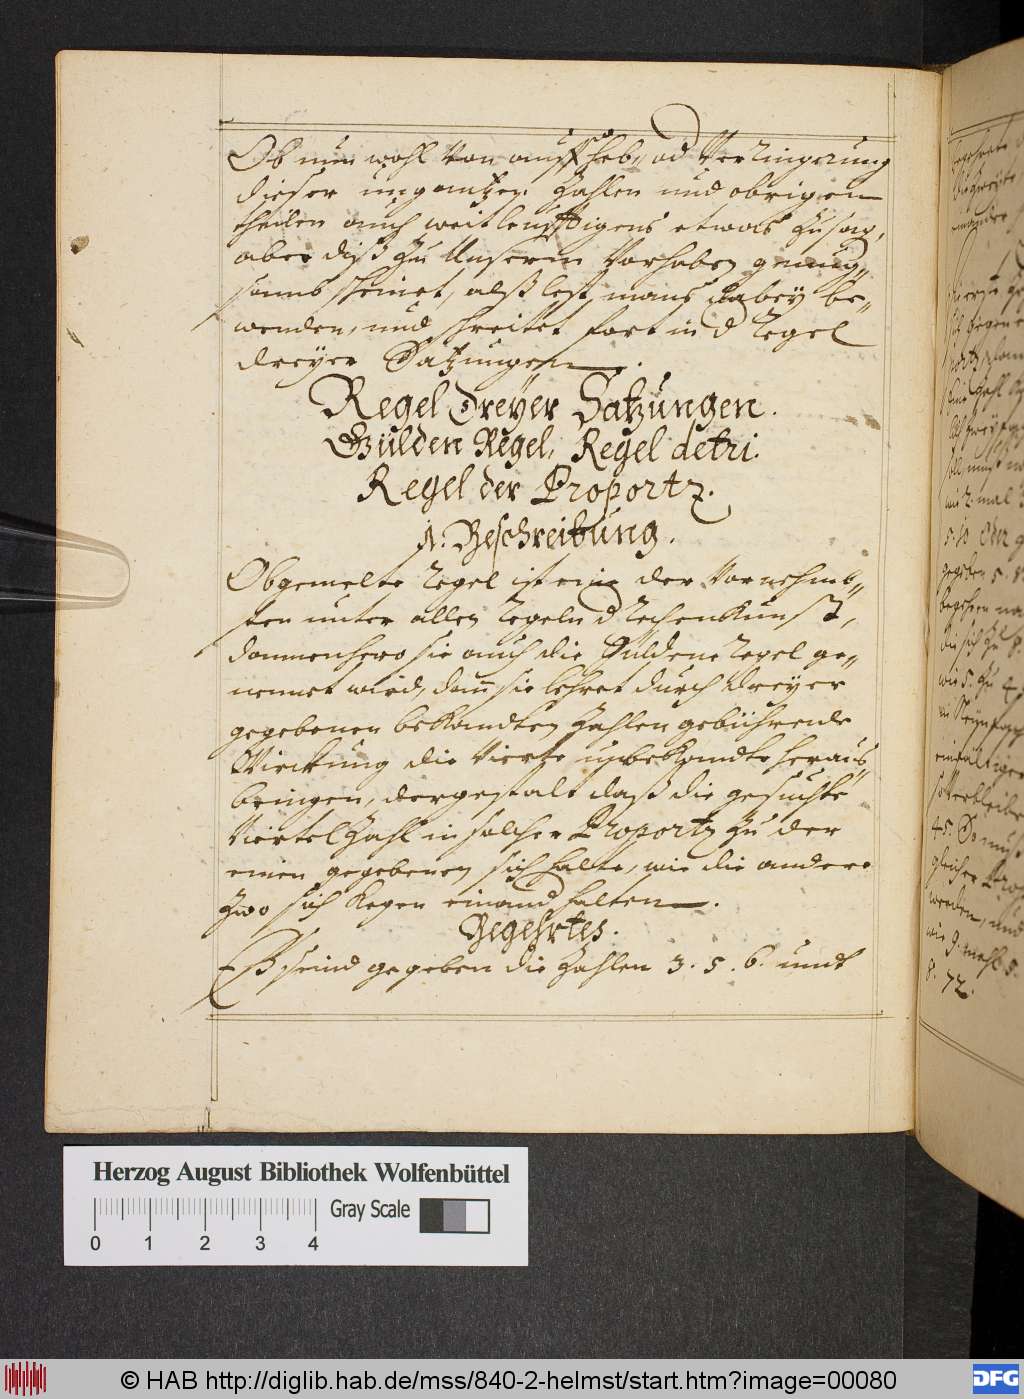 Ob nun wohl von auffheb= od Verringerung
dieser ungantzen Zahlen und obrigen
theilen auch weitleufftigers etwas zusag,
aber diß zu Unserem Vorhaben genug=
samb scheinet, alß lest mans dabey be=
wenden, und schreitet fort in d Regel
dreyer Satzungen.
Regel Dreyer Satzungen.
Gülden Regel, Regel detri.
Regel der Proportz.
1. Beschreibung.
Obgemelte Regel ist eine der Vornehmb=
sten unter allen Regeln d Rechenkunst,
dannenhero sie auch die Guldene Regel ge=
nennet wird, dann sie lehret durch dreyer
gegebenen bekandten Zahlen gebührende
Wirckung die Vierte unbekandte heraus=
bringen, dergestalt daß die gesuchte
Viertel Zahl in solcher Proportz zu der
einen gegebenen sich halte, wie die andere
zwo sich kegen einand halten.
Begehrtes.
Eß seind gegeben die Zahlen 3. 5. 6. undt
5. 10 Oder
gegeben 5.
begehren
die sich zu 8.
wie 5. zu 4
einfaltiger
45. So muß
gleicher Pro
werden, und
wie 9. mahl 5.
8. 72.
Herzog August Bibliothek Wolfenbüttel
Gray Scale
0 1 2 3 4
© HAB http://diglib.hab.de/mss/840-2-helmst/start.htm?image=00080
DFG